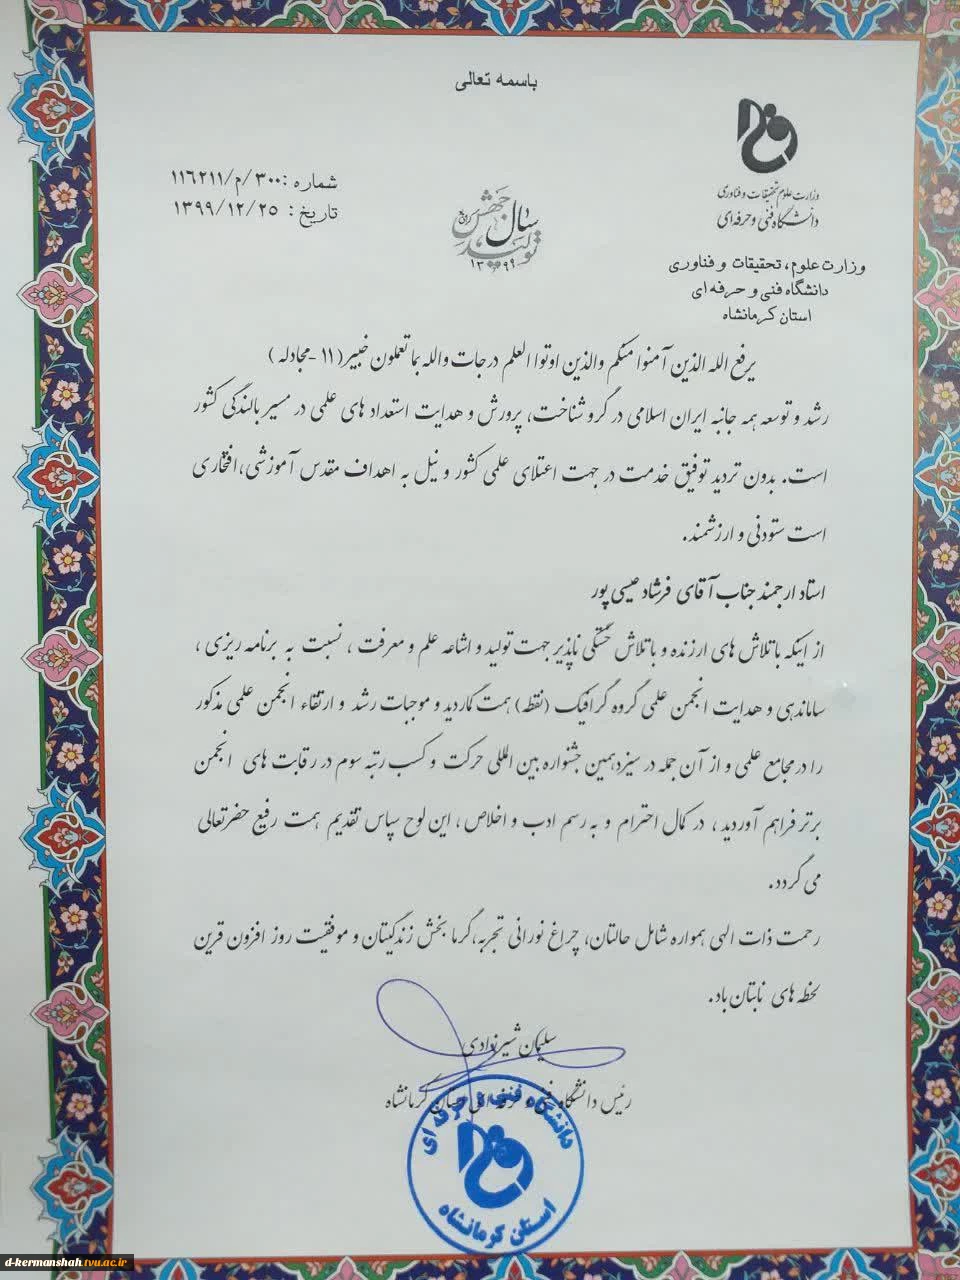 باسمه تعالی
وزارت علوم تحقیقات و فناوری
دانشگاه فنی و حرفه‌ای
شماره :۳۰۰/م/۱۱۶۲۱۱
تاریخ : ۱۳۹۹/۱۲/۲۵
سال جهش تولید
۱۳۹۹
وزارت علوم، تحقیقات و فناوری
دانشگاه فنی و حرفه ای
استان کرمانشاه
یرفع الله الذین آمنوا منکم والذین اوتوا العلم درجات والله بما تعملون خبیر( ۱۱ -مجادله )
رشد و توسعه همه جانبه ایران اسلامی در گرو شناخت، پرورش و هدایت استعداد های علمی در مسیر بالندگی کشور
است. بدون تردید توفیق خدمت در جهت اعتلای علمی کشور و نیل به اهداف مقدس آموزشی،افتخاری
است ستودنی و ارزشمند.
استاد ارجمند جناب آقای فرشاد عیسی پور
از اینکه با تلاش های ارزنده و با تلاش خستگی ناپذیر جهت تولید و اشاعه علم و معرفت ، نسبت به برنامه ریزی ،
ساماندهی و هدایت انجمن علمی گروه گرافیک (نقطه) همت گماردید و موجبات رشد و ارتقاء انجمن علمی مذکور
را در مجامع علمی و از آن جمله در سیزدهمین جشنواره بین المللی حرکت و کسب رتبه سوم در رقابت های انجمن
برتر فراهم آوردید ، در کمال احترام و به رسم ادب و اخلاص ، این لوح سپاس تقدیم همت رفیع حضرتعالی
می گردد.
رحمت ذات الهی همواره شامل حالتان، چراغ نورانی تجربه،گرما بخش زندگیتان و موفقیت روز افزون قرین
لحظه های نابتان باد.
سلیمان شیرزادی
رئیس دانشگاه فنی و حرفه ای استان کرمانشاه
دانشگاه فنی و حرفه ای
استان کرمانشاه
d-kermanshah.tvu.ac.ir